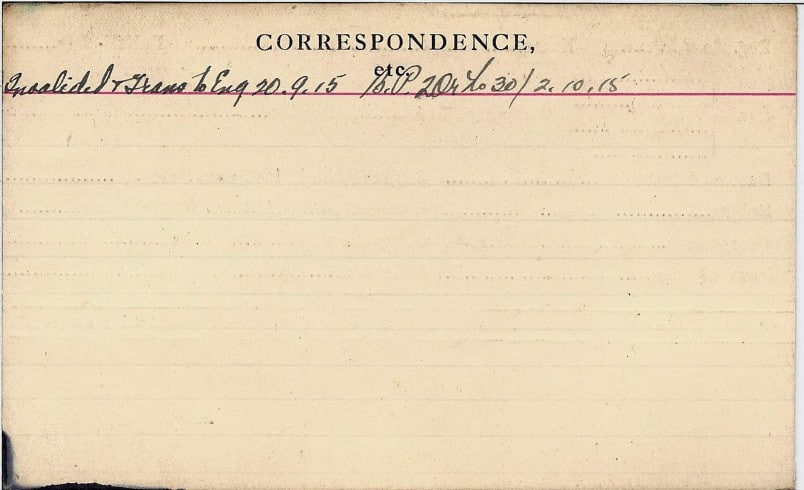 CORRESPONDENCE,
etc.
Invalided & Trans to Eng 20.9.15 20 30/2.10.15